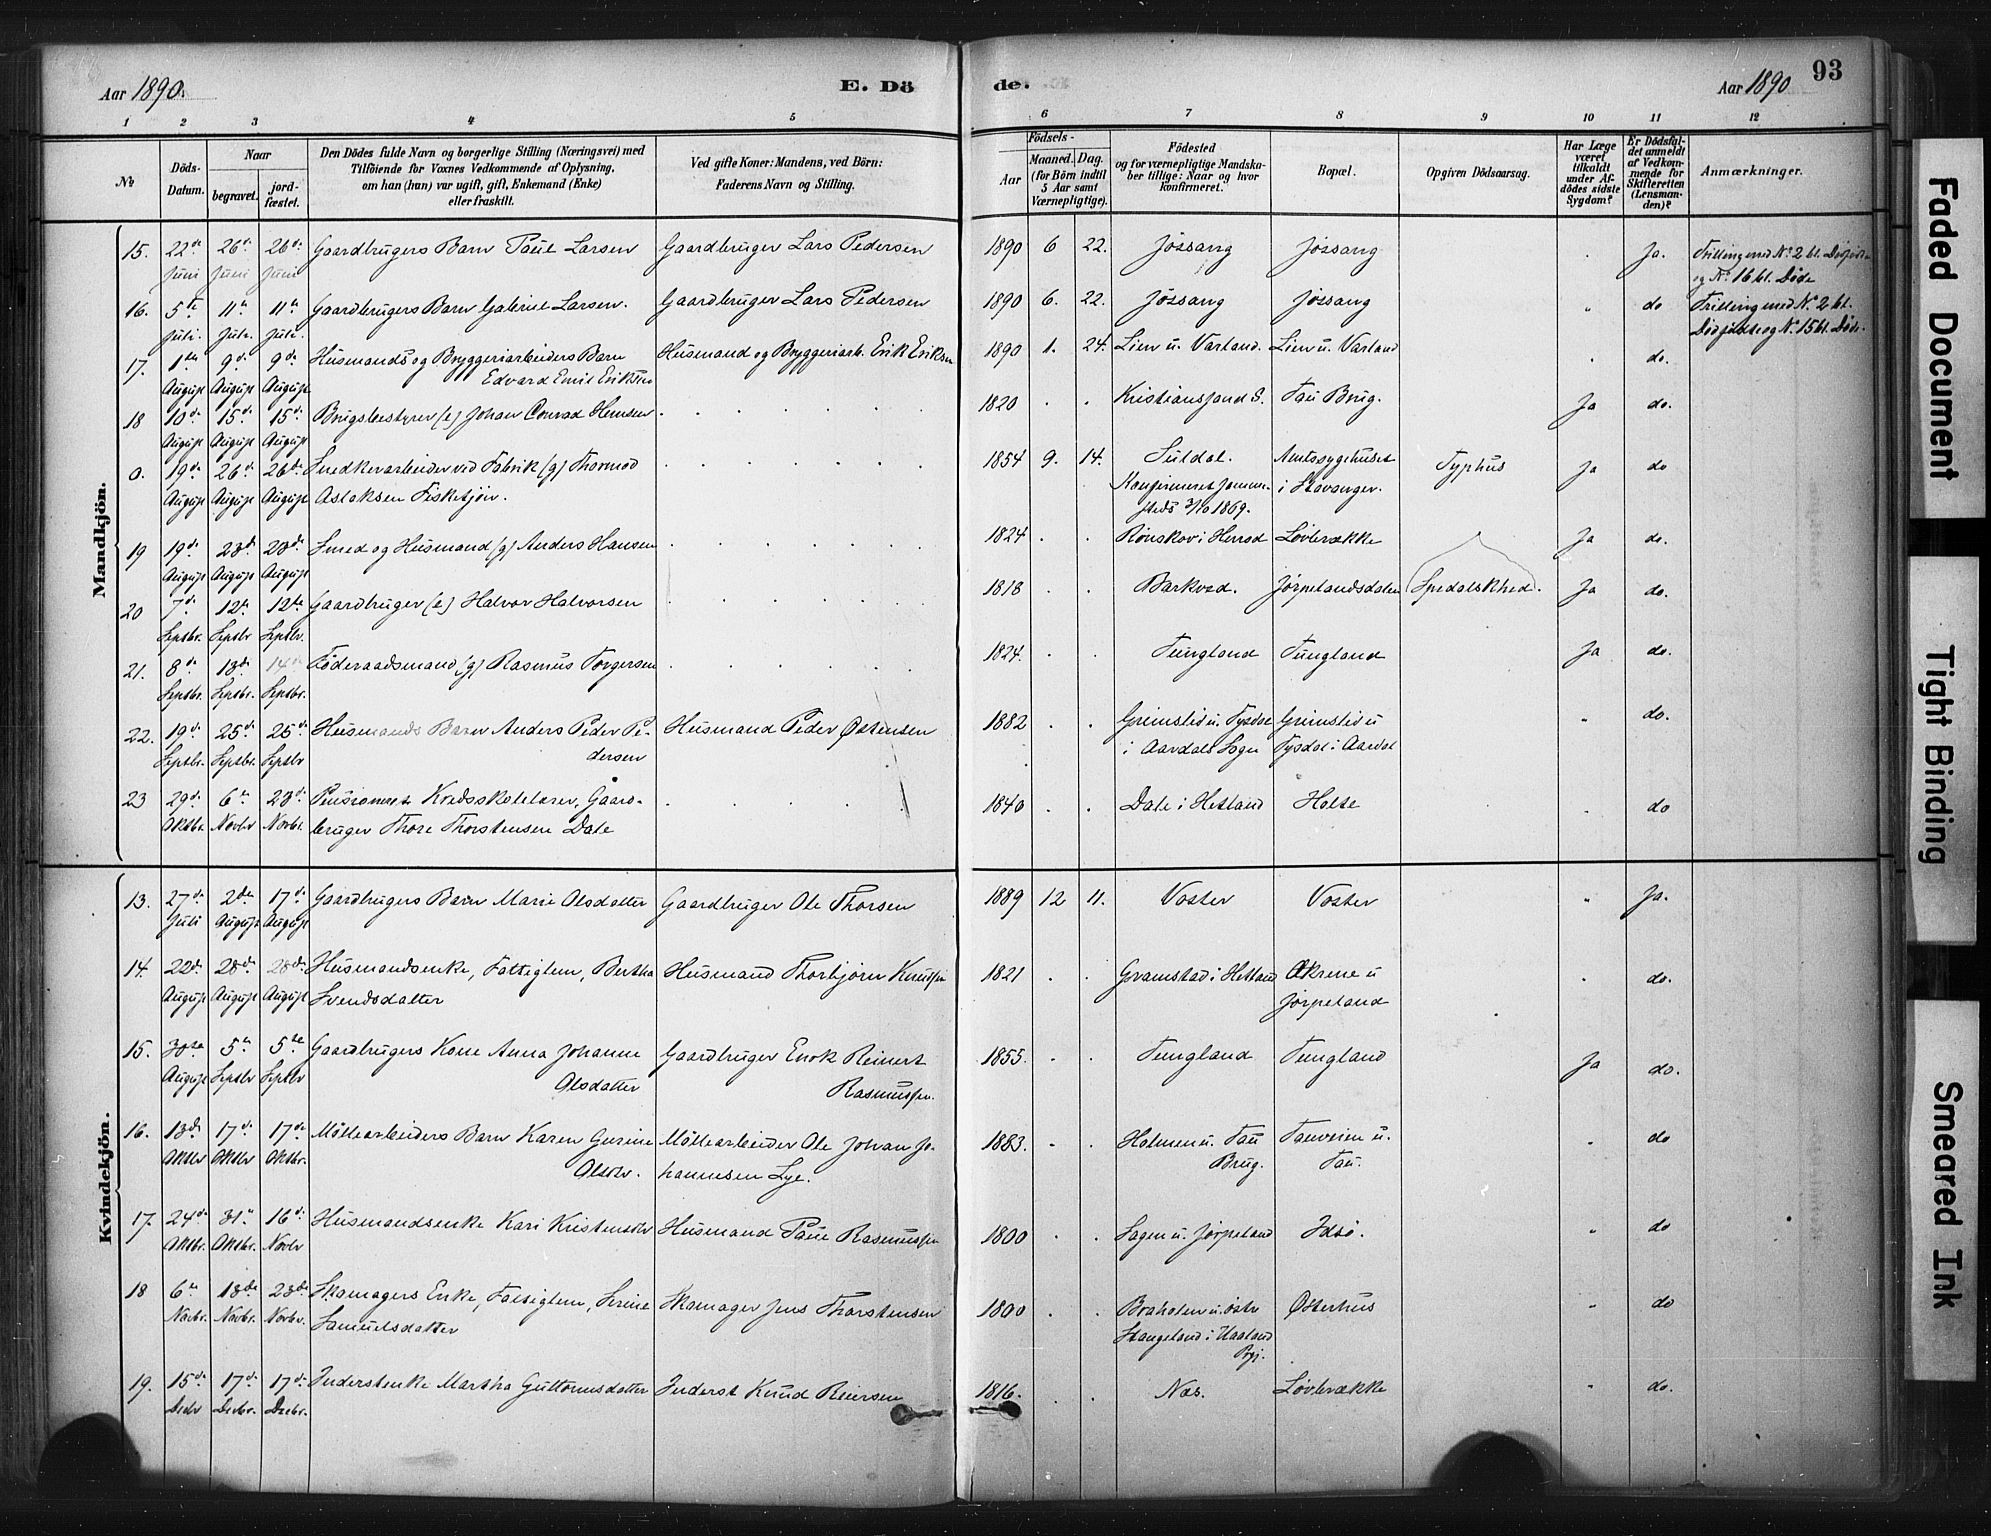 Aar 1890.
E. Dö
de.
Aar 1890
93
1 2 3 4 5 6 7 8 9 10 11 12
No
Döds-
Datum.
Naar
begravet.
jord-
fæstet.
Den Dödes fulde Navn og borgerlige Stilling (Næringsvei) med
Tilföiende for Voxnes Vedkommende af Oplysning,
om han (hun) var ugift, gift, Enkemand (Enke)
eller fraskilt.
Ved gifte Koner: Mandens, ved Börn:
Faderens Navn og Stilling.
Födsels-
Aar
Maaned. Dag.
(for Börn indtil
5 Aar samt
Værnepligtige).
Födested
og for værnepligtige Mandska-
ber tillige: Naar og hvor
konfirmeret.
Bopæl.
Opgiven Dödsaarsag.
Har Læge
været
tilkaldt
under Af-
dödes sidste
Sygdom?
Er Dödsfal-
det anmeldt
af Vedkom-
mende for
Skifteretten
(Lensman-
den)?
Anmærkninger.
Mandkjön.
15. 22de 26de 26de Gaardbrugers Barn Paul Larsen Gaardbruger Lars Pedersen 1890 6 22. Jössang Jössang . Ja. Trilling med No 2 bl. Dødfødte
Juni Juni Juni og No 16 bl. Døde
16. 5te 11te 11te Gaardbrugers Barn Gabriel Larsen. Gaardbruger Lars Pedersen 1890 6. 22. Jössang Jössang " do Trilling med No 2 bl.
Juli. Juli. Juli. Dødfødte og No 15 bl. Døde.
17. 1ste 9de 9de Husmands og Bryggeriarbeiders Barn Husmand og Bryggeriarb. Erik Eriksen 1890 1. 24. Lien u. Varland. Lien u. Varland . do.
August August August Edvard Emil Eriksen
18 10de 15de 15de Brugsbestyrer (e) Johan Conrad Hensen 1820 . . Kristianssand S. Tau Brug. Ja do.
August August August
0. 19de 26de 26de Snedkerarbeider ved Fabrik (g) Thormod 1854 9. 14. Suldal. Amtssygehuset Typhus Ja do
August August August Aslaksen Fisketjön. Konfirmeret samme- i Stavanger.
steds 3/10 1869.
19 19de 23de 23de Smed og Husmand (g) Anders Hansen 1824 . . Rönskov i Herred Løvbrække Ja do.
August August August
20 7de 12te 12te Gaardbruger (e) Halvor Halvorsen 1818 . . Barkved. Jørpelandsdalen Spedalskhed. Ja do.
Septbr. Septbr Septbr.
21. 8de 13de 14de Föderaadsmand (g) Rasmus Torgersen 1824. . . Tungland Tungland Ja do.
Septbr. Septbr. Septbr.
22. 19de 25de 25de Husmands Barn Anders Peder Pe- Husmand Peder Østensen 1882 . . Grimslid u. Tysdal Grimslid u " do.
Septbr. Septbr. Septbr dersen i Aardals Sogn Tysdal i Aardal
23 29de 6te 23de Pensioneret Kredsskolelærer, Gaard- 1840 . . Dale i Hetland Holte . do
Oktbr. Novbr Novbr. bruger Thore Thorstensen Dale
Kvindekjön.
13. 27de 2den 17de Gaardbrugers Barn Marie Olsdatter Gaardbruger Ole Thorsen 1889 12 11. Voster Voster " Ja.
Juli August August
14. 22de 28de 28de Husmandsenke, Fattiglem, Bertha Husmand Thorbjörn Knudsen 1821 . . Gramstad i Hetland Økrene u " do.
August August August Svendsdatter Jørpeland
15. 30te 5te 5te Gaardbrugers Kone Anna Johanne Gaardbruger Enok Reinert 1855. . . Tungland Tungland Ja do.
August Septbr Septbr Olsdatter Rasmussen.
16. 13de 17de 17de Möllearbeiders Barn Karen Gurine Möllearbeider Ole Johan Jo- 1883. . . Holmen u. Tau Tauveien u. " do
Oktbr Oktbr Oktbr. Olsdtr. hannesen Lye. Brug. Tau.
17. 24de 31te 16de Husmandsenke Kari Kristensdtr Husmand Paul Rasmussen 1800 . . Lagen u. Jørpeland Idsö. " do
Oktbr. Oktbr. Novbr
18 6te 13de 23de Skomagers Enke, Fattiglem, Serine Skomager Jens Thorstensen 1800 . . Braholen u. östr Østerhus " do
Novbr. Novbr. Novbr. Samuelsdatter Stangeland i Haaland
Pgj.
19. 15de 17de 17de Inderstenke Martha Guttormsdatter Inderst Knud Reiersen 1816. . . Næs. Løvbrække " do.
Decbr Decbr. Decbr.
Faded Document
Tight Binding
Smeared Ink